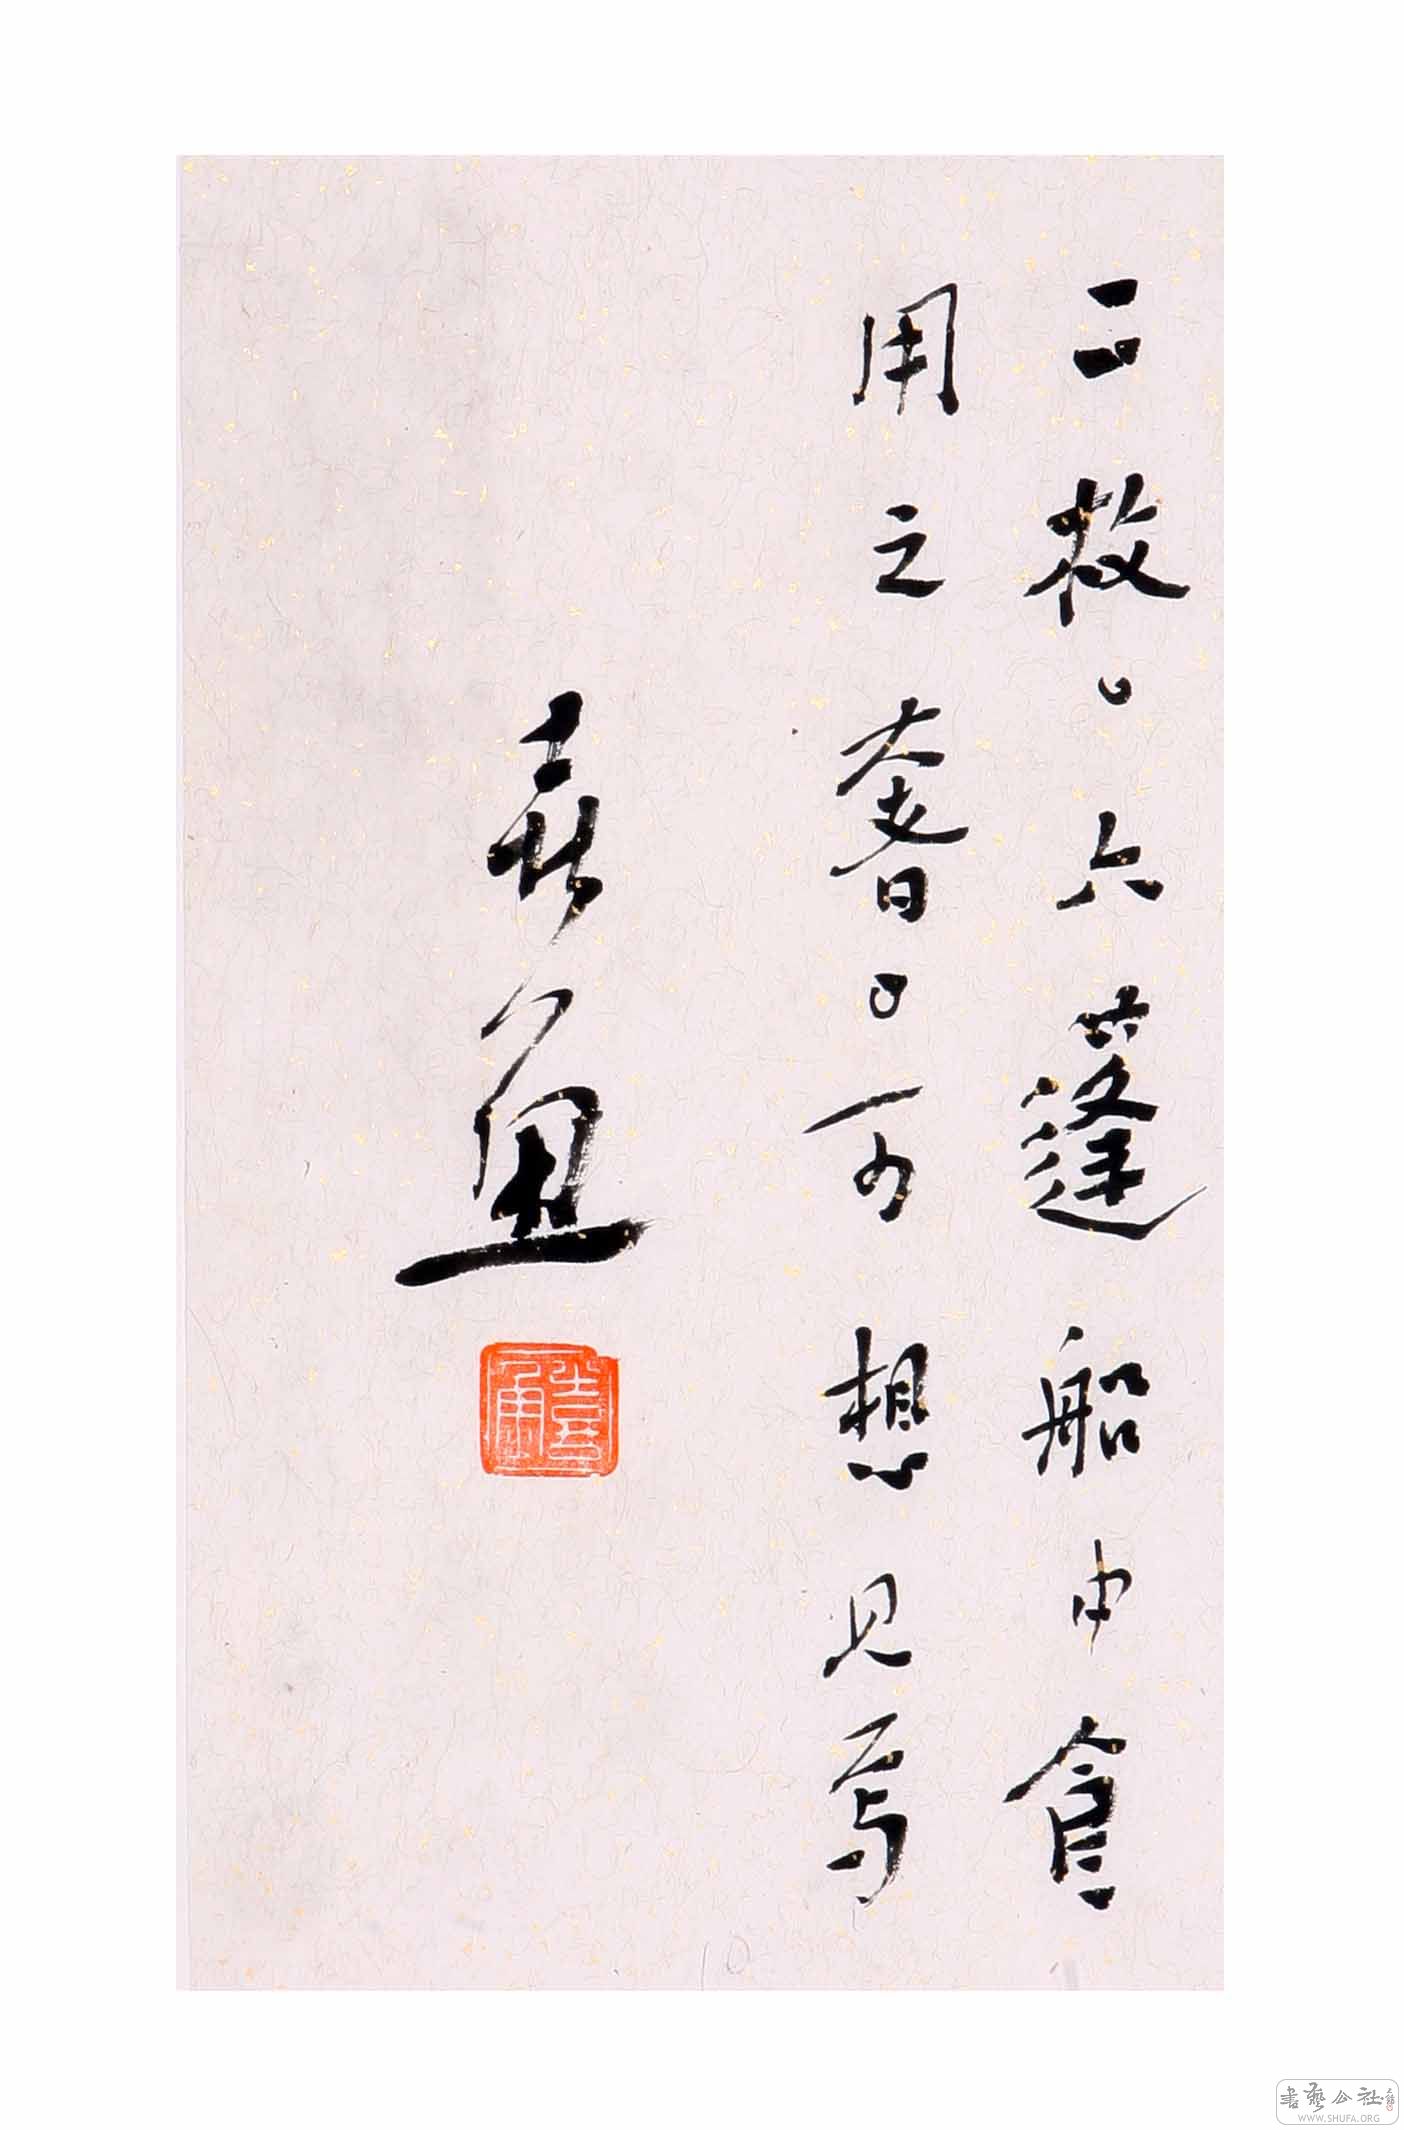 二枚。六蓬船中食
用之奢。可想见焉
10
書藝公社
WWW.SHUFA.ORG